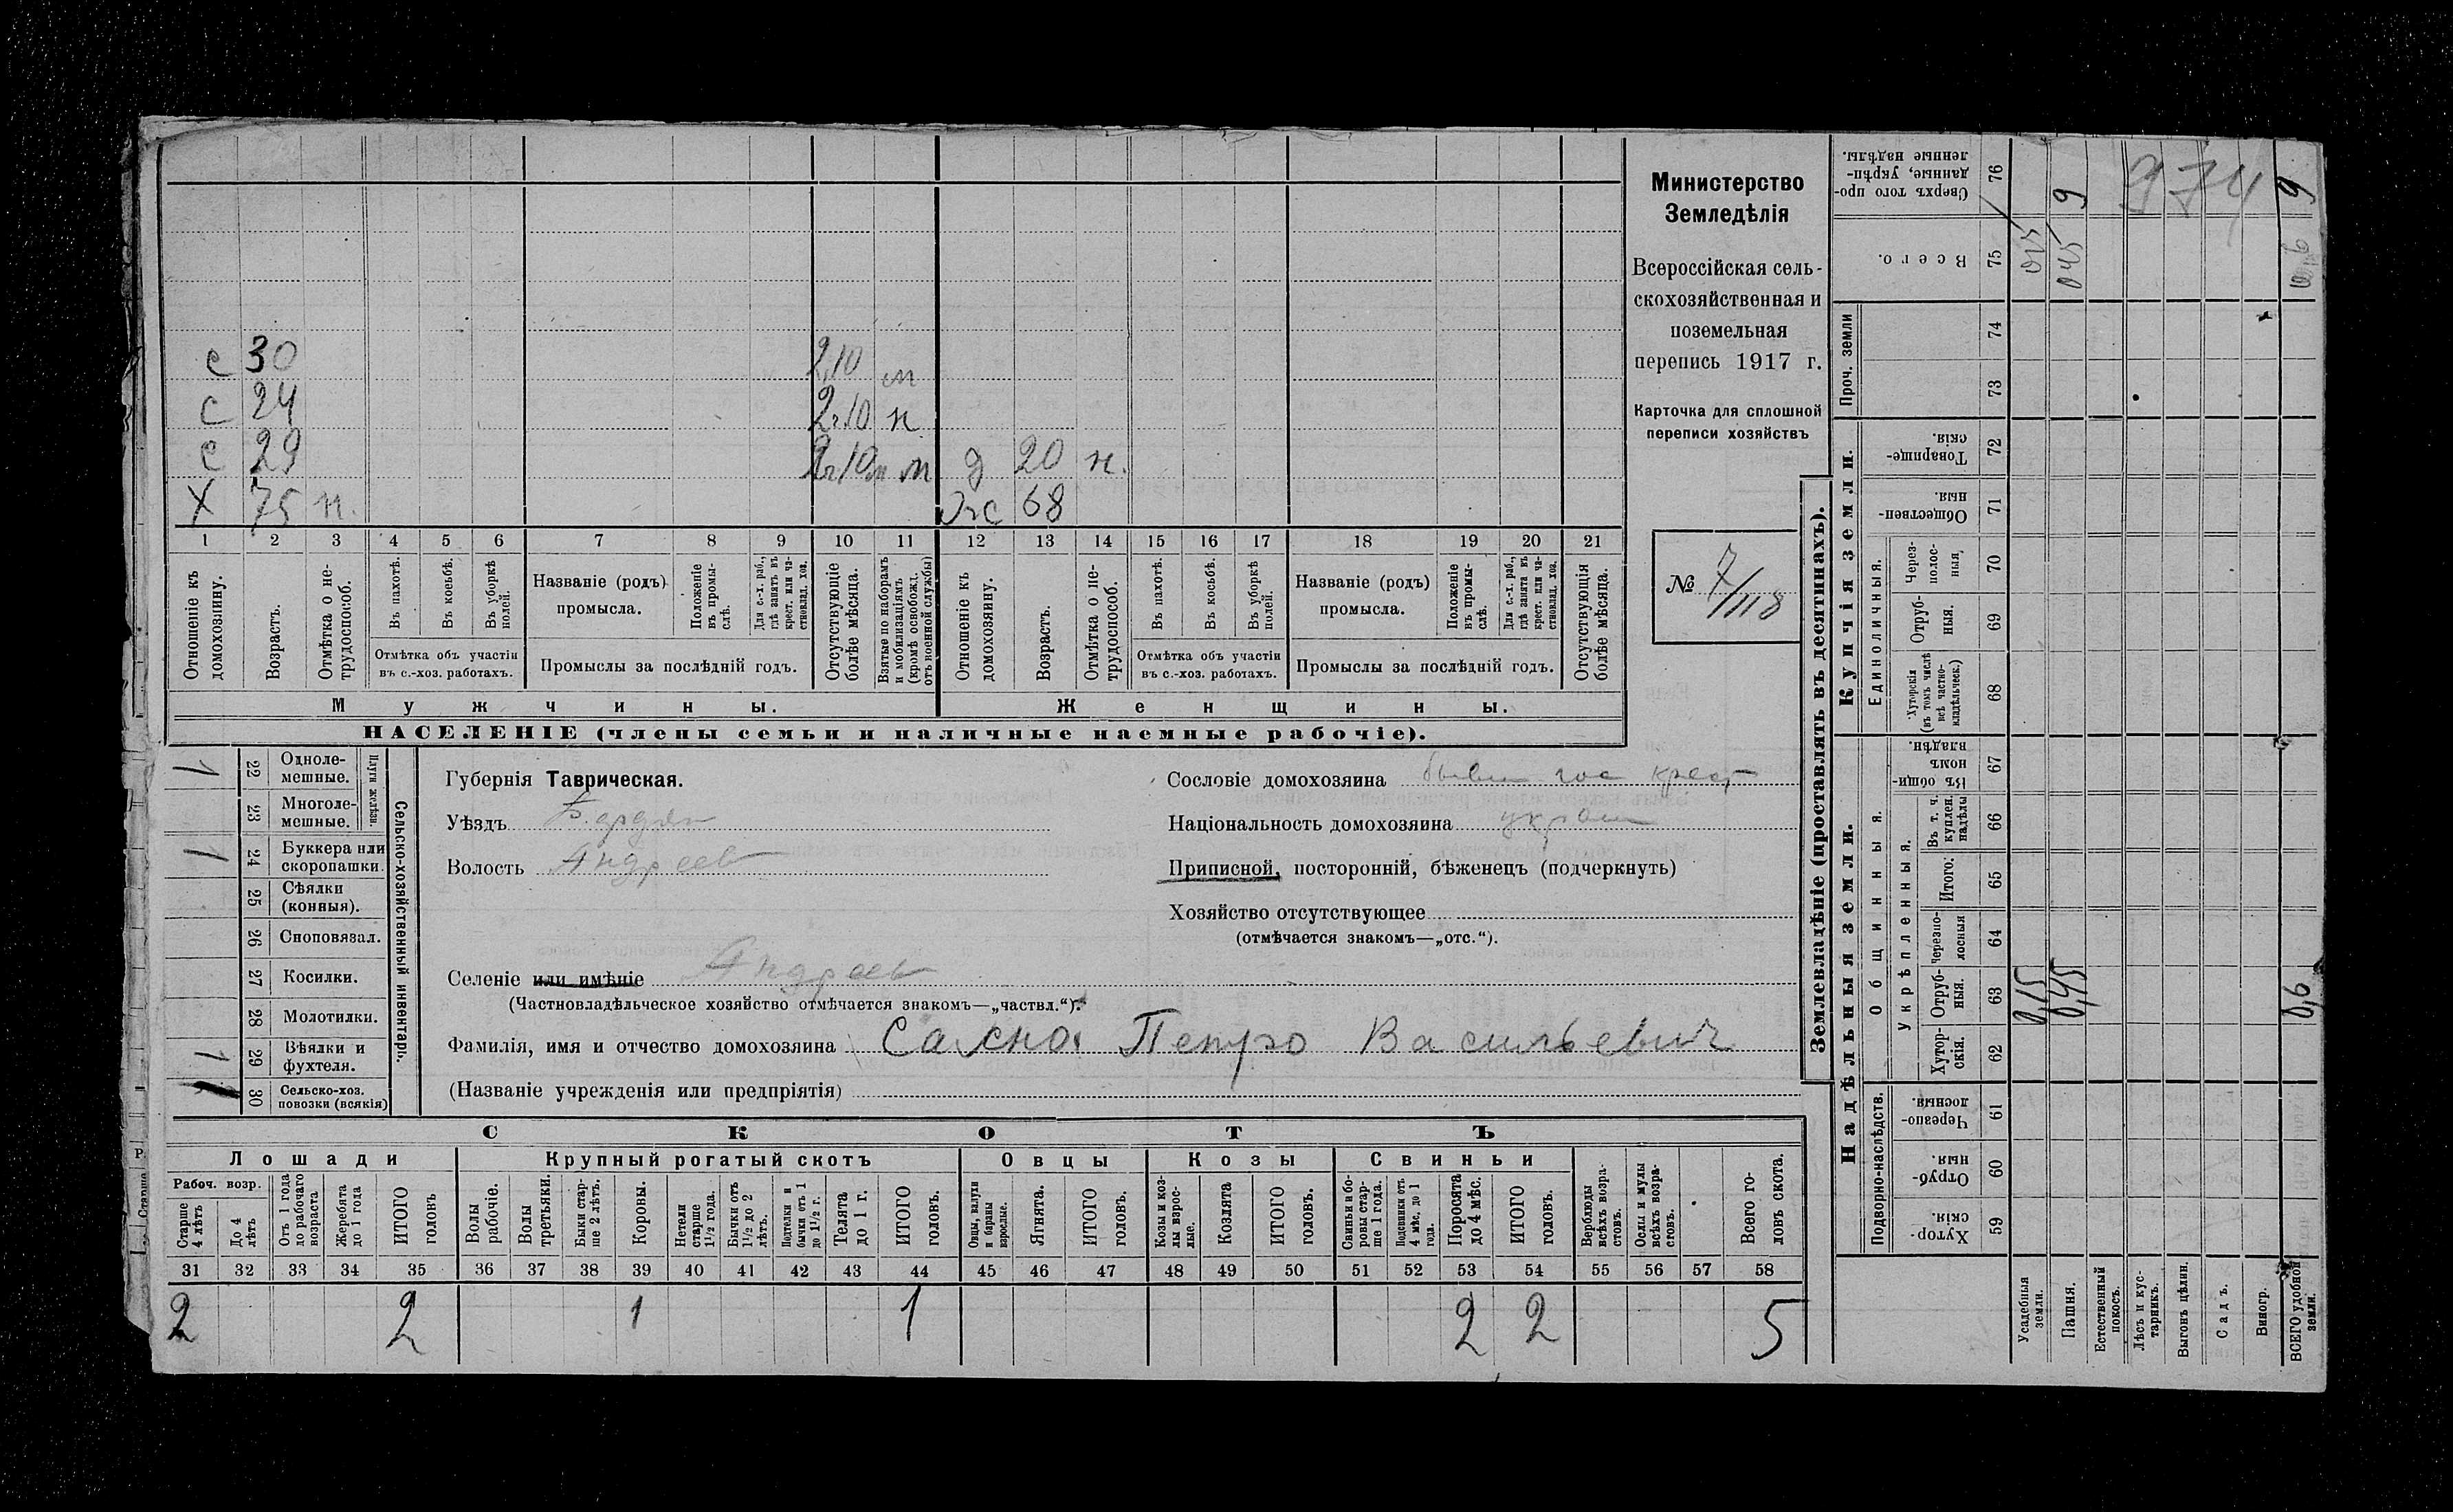 Министерство
Земледѣлія
Всероссійская сель-
скохозяйственная и
поземельная
перепись 1917 г.
Карточка для сплошной
переписи хозяйствъ
№ 7/118
с 30 2,10 м
с 24 2г10 н
с 29 2г10м м д 20 н.
Х 75 н. жс 68
1 2 3 4 5 6 7 8 9 10 11 12 13 14 15 16 17 18 19 20 21
Отношеніе къ домохозяину.
Возрастъ.
Отмѣтка о не-трудоспособ.
Въ пахотѣ.
Въ косьбѣ.
Въ уборкѣ полей.
Отмѣтка объ участіи
въ с.-хоз. работахъ.
Названіе (родъ)
промысла.
Положеніе въ промы-слѣ.
Для с.-х. раб., гдѣ занятъ въ крест. или ча-стновлад. хоз.
Промыслы за послѣдній годъ.
Отсутствующіе болѣе мѣсяца.
Взятые по наборамъ и мобилизаціямъ (кромѣ освобожд. отъ военной службы)
Отношеніе къ домохозяину.
Возрастъ.
Отмѣтка о не-трудоспособ.
Въ пахотѣ.
Въ косьбѣ.
Въ уборкѣ полей.
Отмѣтка объ участіи
въ с.-хоз. работахъ.
Названіе (родъ)
промысла.
Положеніе въ промы-слѣ.
Для с.-х. раб., гдѣ занята въ крест. или ча-стновлад. хоз.
Промыслы за послѣдній годъ.
Отсутствующія болѣе мѣсяца.
Мужчины. Женщины.
НАСЕЛЕНІЕ (члены семьи и наличные наемные рабочіе).
Сельско-хозяйственный инвентарь.
Плуги желѣзн.
1 22 Одноле-мешные.
23 Многоле-мешные.
1 24 Буккера или скоропашки.
25 Сѣялки (конныя).
26 Сноповязал.
27 Косилки.
28 Молотилки.
1 29 Вѣялки и фухтеля.
1 30 Сельско-хоз. повозки (всякія)
Губернія Таврическая.
Уѣздъ Бердян
Волость Андреев
Селеніе или имѣніе Андреев
(Частновладѣльческое хозяйство отмѣчается знакомъ—„частвл.“).
Фамилія, имя и отчество домохозяина Петро Васильевич
(Названіе учрежденія или предпріятія)
Сословіе домохозяина бывш гос крест
Національность домохозяина украин
Приписной, посторонній, бѣженецъ (подчеркнуть)
Хозяйство отсутствующее
(отмѣчается знакомъ—„отс.“).
СКОТЪ
Лошади Крупный рогатый скотъ Овцы Козы Свиньи
Рабоч. возр.
Старше 4 лѣтъ
До 4 лѣтъ
Отъ 1 года до рабочаго возраста
Жеребята до 1 года
ИТОГО головъ
Волы рабочіе.
Волы третьяки.
Быки стар-ше 2 лѣтъ.
Коровы.
Нетели старше 1½ года.
Бычки отъ 1½ до 2 лѣтъ.
Подтелки и бычки отъ 1 до 1½ г.
Телята до 1 г.
ИТОГО головъ.
Овцы, валухи и бараны взрослые.
Ягнята.
ИТОГО головъ.
Козы и коз-лы взрос-лые.
Козлята
ИТОГО головъ.
Свиньи и бо-ровы стар-ше 1 года.
Подсвинки отъ 4 мѣс. до 1 года.
Поросята до 4 мѣс.
ИТОГО головъ.
Верблюды всѣхъ возра-стовъ.
Ослы и мулы всѣхъ возра-стовъ.
Всего го-ловъ скота.
31 32 33 34 35 36 37 38 39 40 41 42 43 44 45 46 47 48 49 50 51 52 53 54 55 56 57 58
2 2 1 1 2 2 5
Землевладѣніе (проставлять въ десятинахъ).
Надѣльныя земли. Купчія земли. Проч. земли
Подворно-наслѣдств.
Общинныя.
Укрѣпленныя.
Единоличныя.
Сверхъ того про-данные, укрѣп-ленные надѣлы. 76 9 9
Всего. 75 0,15 0,45
74
73
Товарище-скія. 72
Обществен-ныя. 71
Через-полос-ныя. 70
Отруб-ныя. 69
Хуторскія (въ томъ числѣ всѣ частно-владѣльческ.) 68
Въ общи-номъ владѣн. 67
Въ т. ч. куплен. надѣлы 66
Итого: 65
Черезпо-лосныя 64
Отруб-ныя. 63 0,15 0,45 0,6
Хутор-скія. 62
Черезпо-лосныя. 61
Отруб-ныя. 60
Хутор-скія. 59
Усадебныя земли.
Пашня.
Естественный покосъ.
Лѣсъ и кус-тарникъ.
Выгонъ цѣлин.
Садъ.
Виногр.
ВСЕГО удобной земли.
974